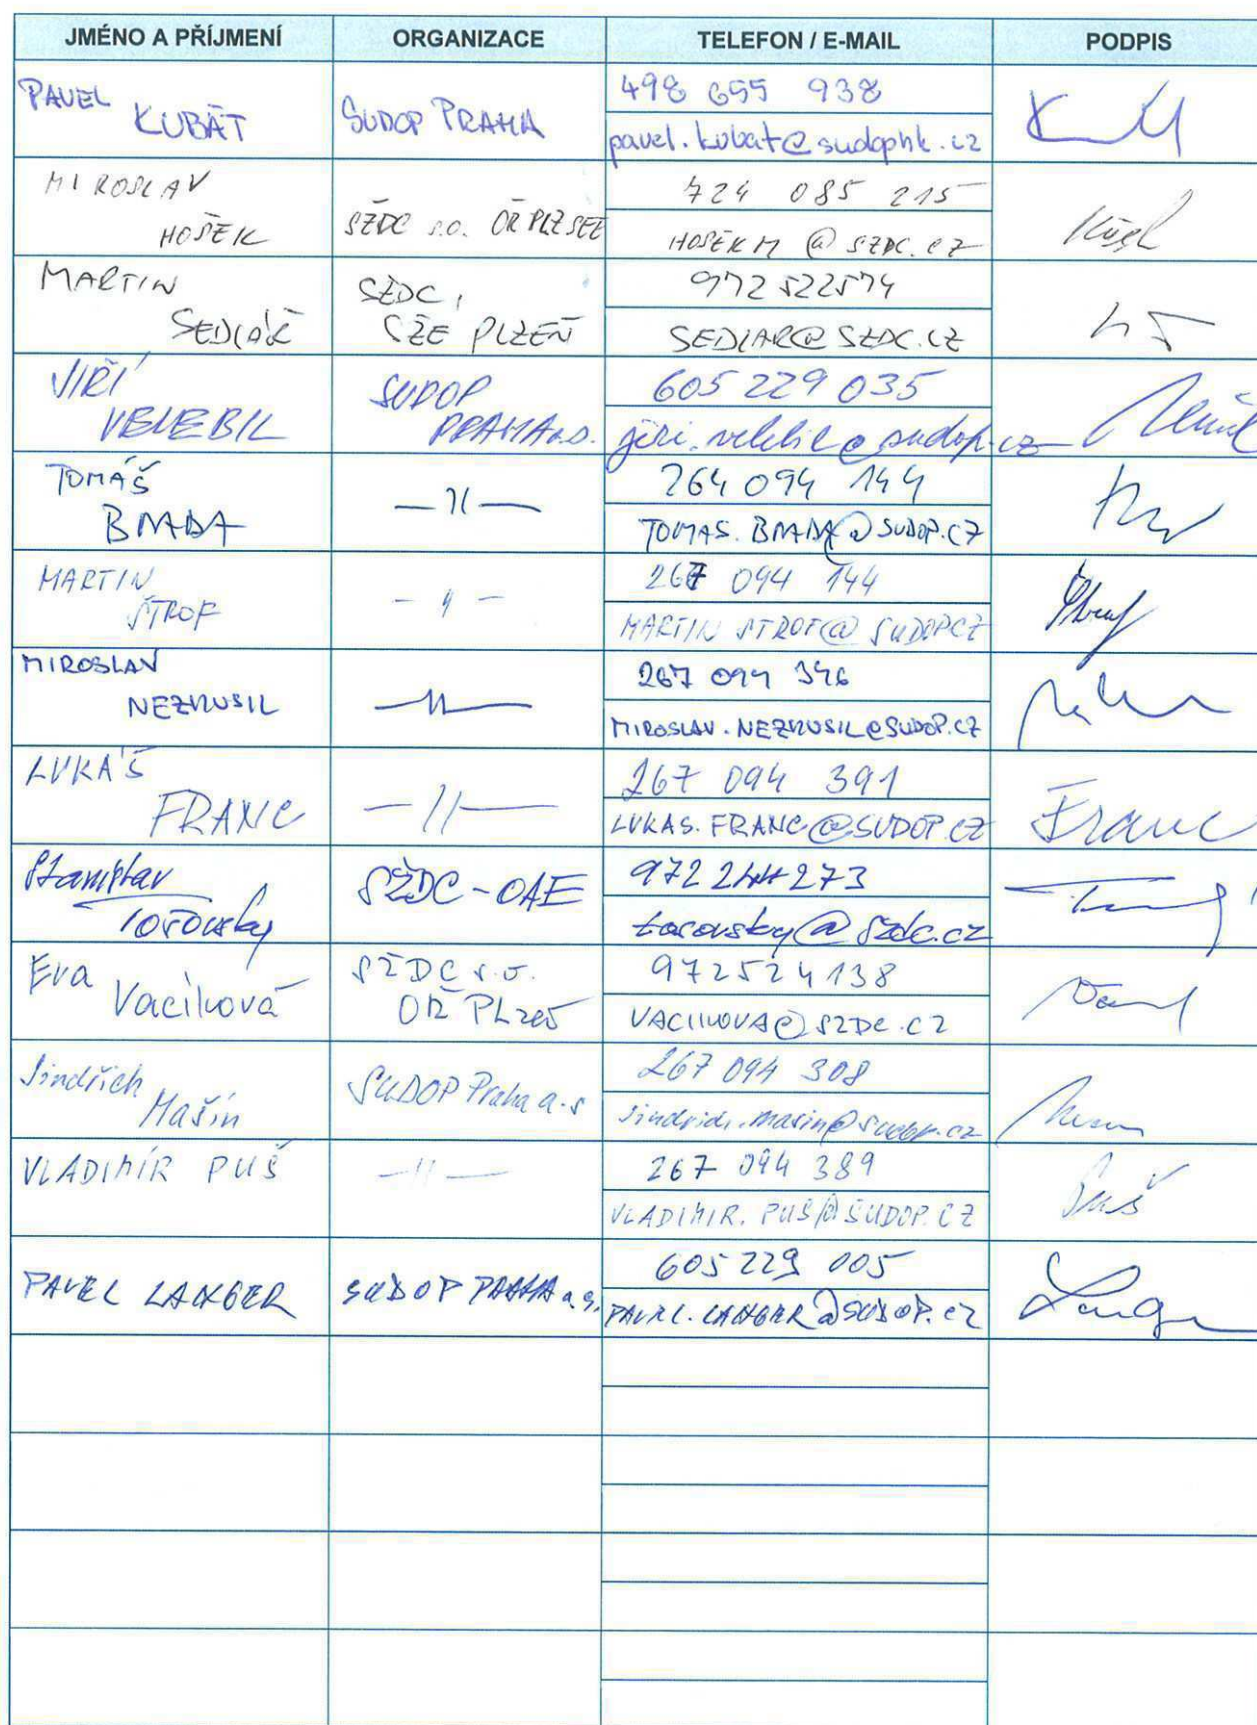 JMÉNO A PŘÍJMENÍ ORGANIZACE TELEFON / E-MAIL PODPIS
PAVEL KUBÁT SUDOP PRAHA 498 655 938
pavel.kubat@sudophk.cz
MIROSLAV HOŠEK SŽDC s.o. OŘ PLZ SEE 724 085 215
HOSEKM@SZDC.CZ
MARTIN SEDLÁŘ SŽDC, SŽE PLZEŇ 972 522574
SEDLAR@SZDC.CZ
JIŘÍ VELEBIL SUDOP PRAHA a.s. 605 229 035
jiri.velebil@sudop.cz
TOMÁŠ —〃— 264 094 144
MARTIN ŠTROF -〃- 267 094 144
MARTIN STROF@SUDOP.CZ
MIROSLAV NEZKUSIL —〃— 267 094 346
MIROSLAV.NEZKUSIL@SUDOP.CZ
LUKÁŠ FRANC —〃— 267 094 391
LUKAS.FRANC@SUDOP.CZ Franc
Stanislav SŽDC-OAE 972 244 273
@szdc.cz
Eva Vacíková SŽDC s.o. OŘ PLzeň 972524138
VACIKOVA@SZDC.CZ
Jindřich Mašín SUDOP Praha a.s 267 094 308
jindrich.masin@sudop.cz
VLADIMÍR PUŠ —〃— 267 094 389
VLADIMIR.PUS@SUDOP.CZ Puš
PAVEL LANGER SUDOP PRAHA a.s. 605 229 005
PAVEL.LANGER@SUDOP.CZ